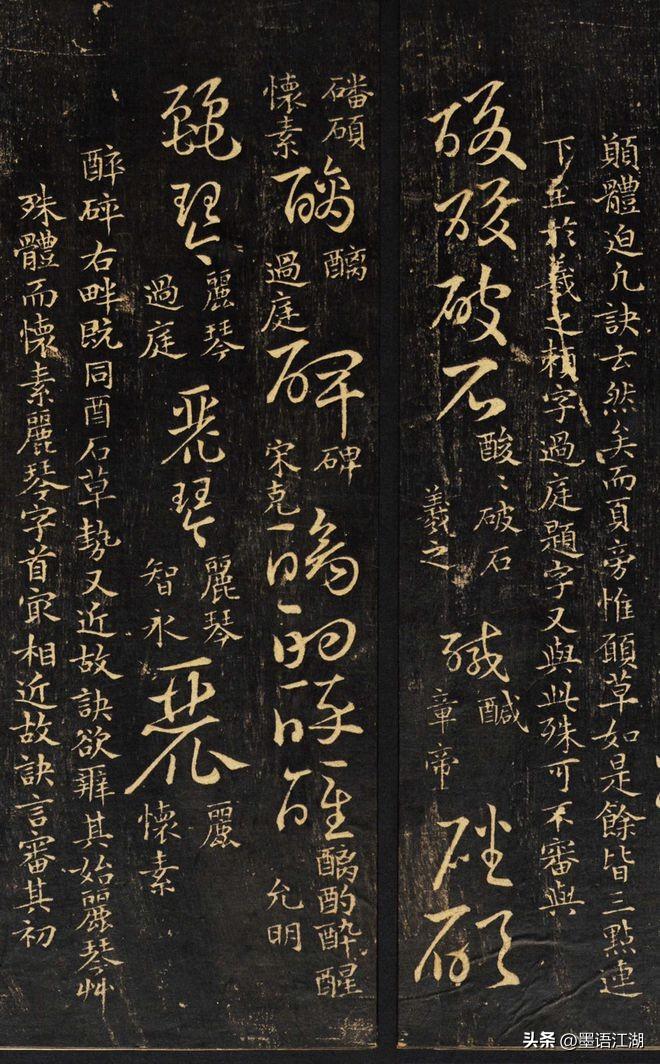 顛體迫凡訣云然矣而頁旁惟頤草如是餘皆三點連
下至於羲之賴字過庭題字又與此殊可不審與
酸酸破石
酸〻破石
羲之
醎
醎
章帝
磻碩
磻碩
懷素
醨
醨
過庭
碑
碑
宋克
醨酌醉醒
醨酌醉醒
允明
麗琴
麗琴
過庭
麗琴
麗琴
智永
麗
麗
懷素
醉碎右畔既同酉石草勢又近故訣欲辨其始麗琴艸
殊體而懷素麗琴字首最相近故訣言審其初
头条 @墨语江湖